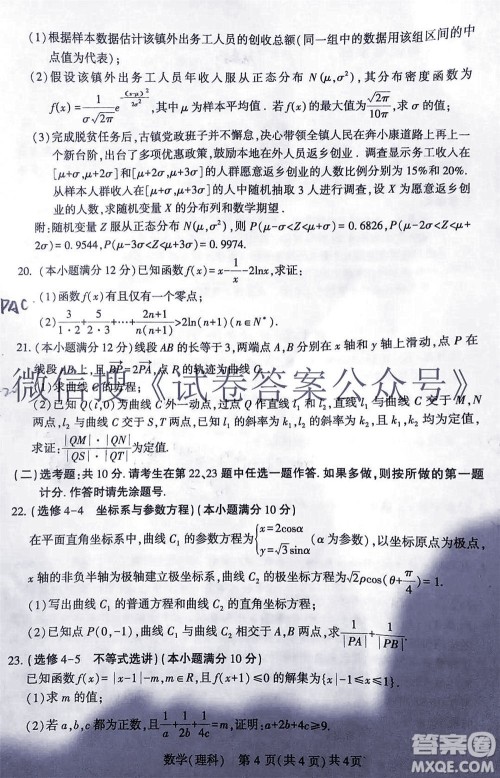 (1)根据样本数据估计该镇外出务工人员的创收总额(同一组中的数据用该组区间的中
点值为代表);
(2)假设该镇外出务工人员年收入服从正态分布 N(μ,σ²),其分布密度函数为
f(x)=1/(σ√2π) e^((x-μ)²/2σ²),其中μ为样本平均值.若f(x)的最大值为√2π/10π,求σ的值;
(3)完成脱贫任务后,古镇党政班子并不懈怠,决心带领全镇人民在奔小康道路上再上一
个新台阶,出台了多项优惠政策,鼓励本地在外人员返乡创业.调查显示务工收入在
[μ+σ,μ+2σ)和[μ+2σ,μ+3σ)的人群愿意返乡创业的人数比例分别为15%和20%.
从样本人群收入在[μ+σ,μ+3σ)的人中随机抽取3人进行调查,设X为愿意返乡创
业的人数,求随机变量X的分布列和数学期望.
附:随机变量Z服从正态分布N(μ,σ²),则P(μ-σ<Z<μ+σ)=0.6826,P(μ-2σ<Z<μ+
2σ)=0.9544,P(μ-3σ<Z<μ+3σ)=0.9974.
20.(本小题满分12分)已知函数f(x)=x-1/x-2lnx,求证:
PAC
(1)函数f(x)有且仅有一个零点;
(2)3/(1·2)+5/(2·3)+…+(2n+1)/(n(n+1))>2ln(n+1)(n∈N*).
21.(本小题满分12分)线段AB的长等于3,两端点A,B分别在x轴和y轴上滑动,点P在
线段AB上,且BP=2PA,点P的轨迹为曲线C.
微信搜《试卷答案公众号》
(1)求曲线C的方程;
(2)已知Q(t,0)为曲线C外一动点,过点Q作直线l₁和l₂,直线l₁与曲线C交于M,N
两点,l₂与曲线C交于S,T两点,已知l₁的斜率为k₁,l₂的斜率为k₂,且k₁,k₂均为定值,
求证:|QM|·|QN|/|QS|·|QT|为定值.
(二)选考题:共10分.请考生在第22、23题中任选一题作答.如果多做,则按所做的第一题
计分.作答时请先涂题号.
22.(选修4-4 坐标系与参数方程)(本小题满分10分)
在平面直角坐标系中,曲线C₁的参数方程为{x=2cosα y=√3sinα(α为参数),以坐标原点为极点,
x轴的非负半轴为极轴建立极坐标系,曲线C₂的极坐标方程为√2ρcos(θ+π/4)=1.
(1)写出曲线C₁的普通方程和曲线C₂的直角坐标方程;
(2)已知点P(0,-1),曲线C₁与曲线C₂相交于A,B两点,求1/|PA|+1/|PB|.
23.(选修4-5 不等式选讲)(本小题满分10分)
已知函数f(x)=|x-1|-m,m∈R,且f(x+1)≤0的解集为{x|-1≤x≤1}.
(1)求m的值;
(2)若a,b,c都为正数,且1/a+1/2b+1/4c=m,证明:a+2b+4c≥9.
数学(理科) 第4页(共4页)共4页
答案圈
MXQE.COM